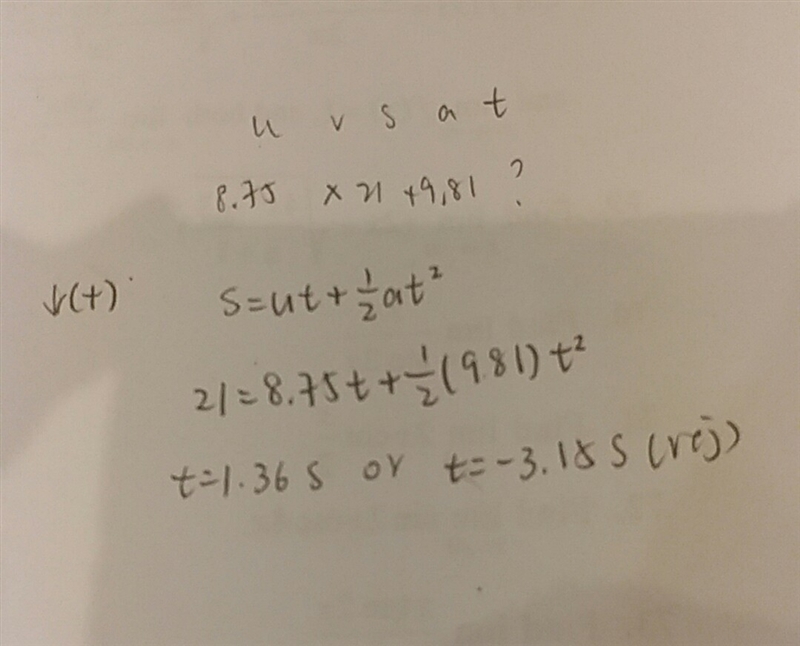 u v s a t
8.75 x 21 +9.81 ?
↓(+) s=ut+½at²
21=8.75t+½(9.81)t²
t=1.36 s or t=-3.15 s (rej)